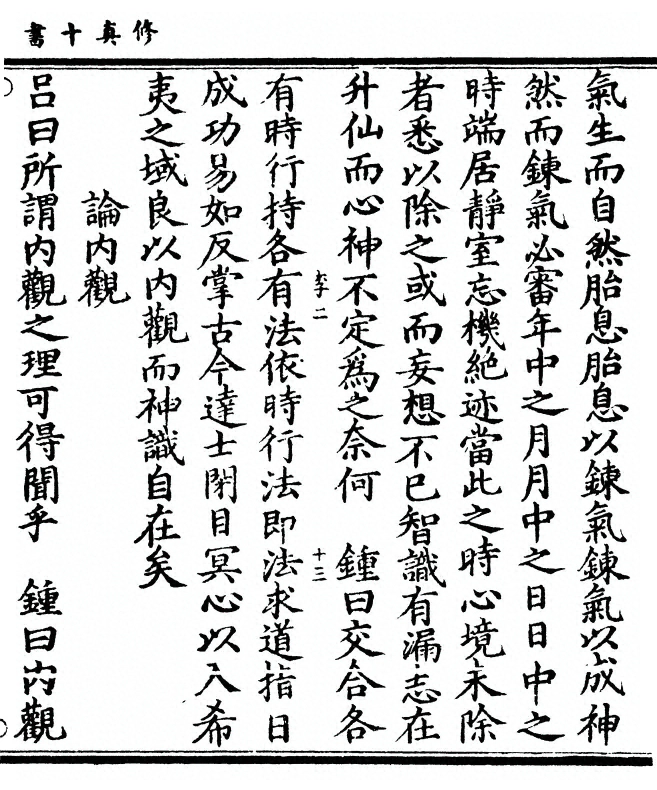 修真十書
氣生而自然胎息胎息以鍊氣鍊氣以成神
然而鍊氣必審年中之月月中之日日中之
時端居靜室忘機絶迹當此之時心境未除
者悉以除之或而妄想不已智識有漏志在
升仙而心神不定爲之奈何 鍾曰交合各
李二 十三
有時行持各有法依時行法即法求道指日
成功易如反掌古今達士閉目冥心以入希
夷之域良以内觀而神識自在矣
論内觀
吕曰所謂内觀之理可得聞乎 鍾曰内觀